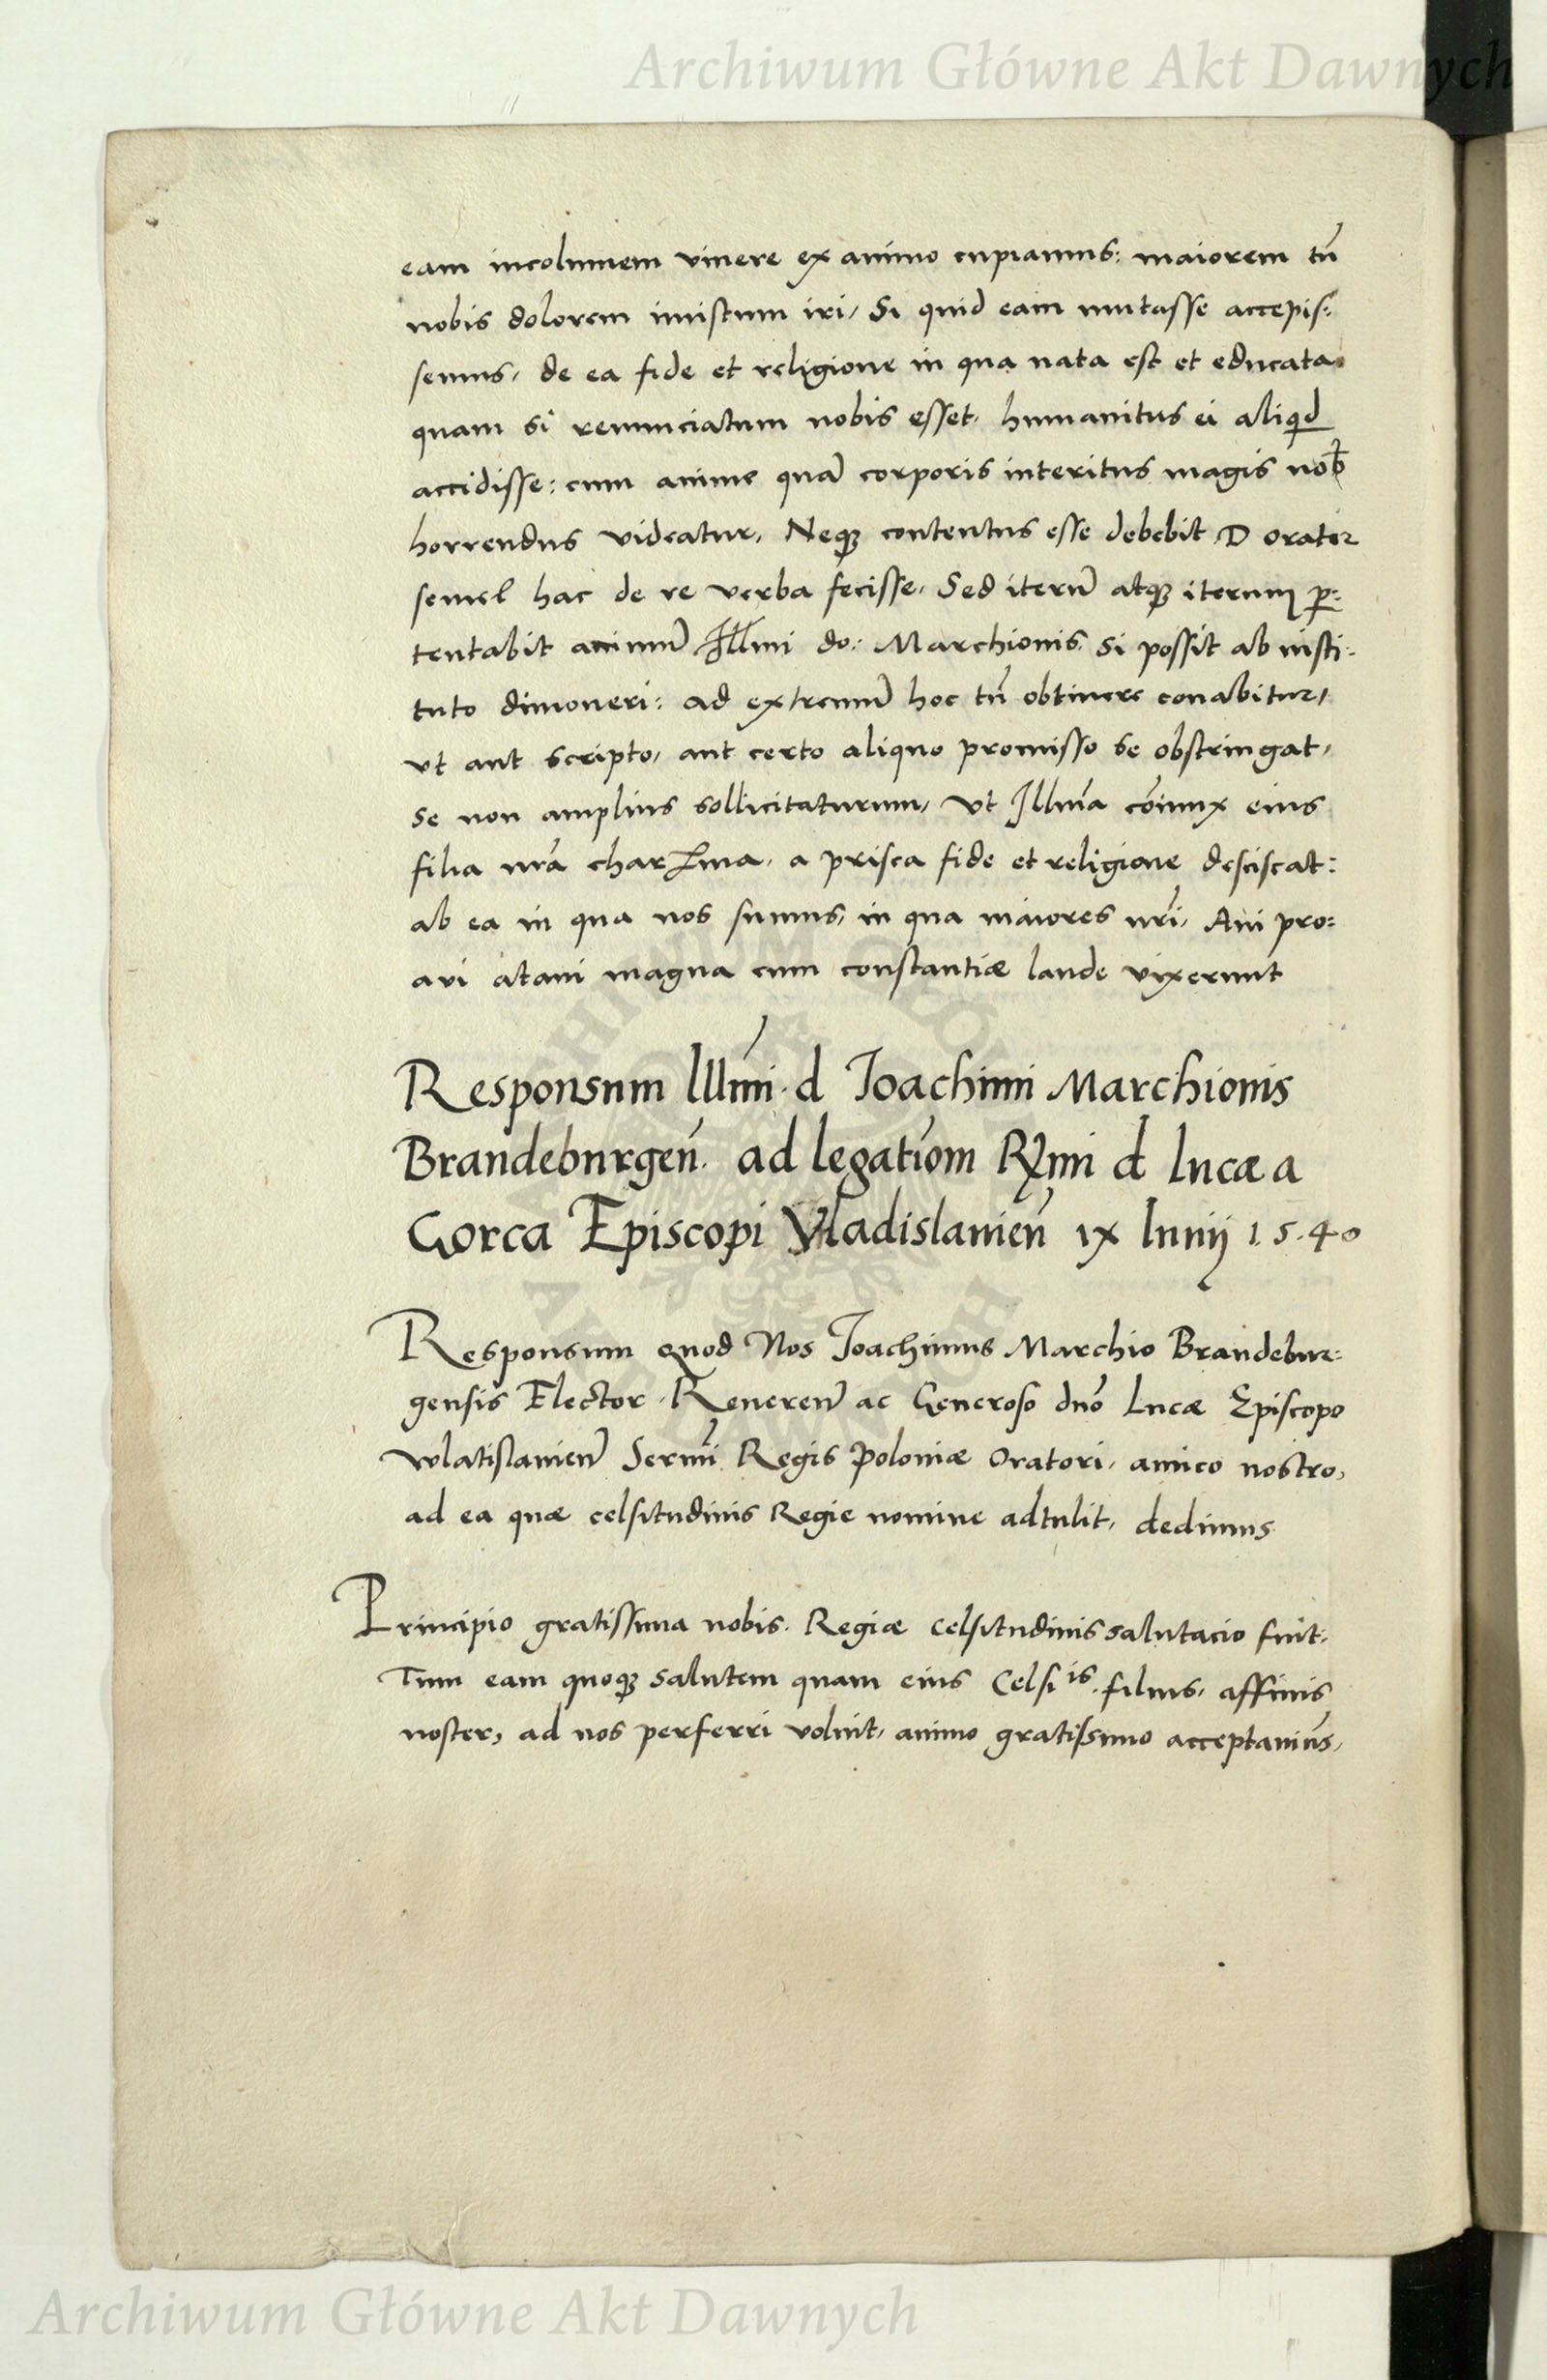 Archiwum Główne Akt Dawnych
eam incolumem viuere ex animo cupiamus: maiorem tn̄
nobis dolorem inustum iri, Si quid eam mutasse accepis:
semus, de ea fide et religione in qua nata est et educata
quam si renunciatum nobis esset, humanitus ei aliqd
accidisse: cum anime quā corporis interitus magis nob
horrendus videatur, Neqꝫ contentus esse debebit D orator
semel hac de re verba fecisse, Sed iterū atqꝫ iterum ꝑ:
tentabit animū Illmi do: Marchionis, si possit ab insti:
tuto dimoueri: ad extremū hoc tn̄ obtinere conabitur,
vt aut scripto, aut certo aliquo promisso se obstringat,
se non amplius sollicitaturum, vt Illma cōiunx eius
filia nrā charma, a prisca fide et religione desciscat:
ab ea in qua nos sumus, in qua maiores nrī, Aui pro:
avi ataui magna cum constantiæ laude vixerunt
Responsum Illmi d Ioachimi Marchionis
Brandeburgeñ. ad legatīom Rmi d Lucæ a
Gorca Episcopi Vladislauieñ ix Iunij 1.5.40
Responsum quod Nos Ioachimus Marchio Brandebur:
gensis Elector. Reuereñ ac Generoso dnō Lucæ Episcopo
wlatislauieñ Sermi Regis Poloniæ Oratori, amico nostro,
ad ea quæ celsitudinis Regie nomine adtulit, dedimus
Principio gratissima nobis. Regiæ celsitudinis salutacio fuit:
Tum eam quoqꝫ salutem quam eius Celsiis. filius, affinis
noster, ad nos perferri voluit, animo gratissimo acceptauim̄s,
Archiwum Główne Akt Dawnych